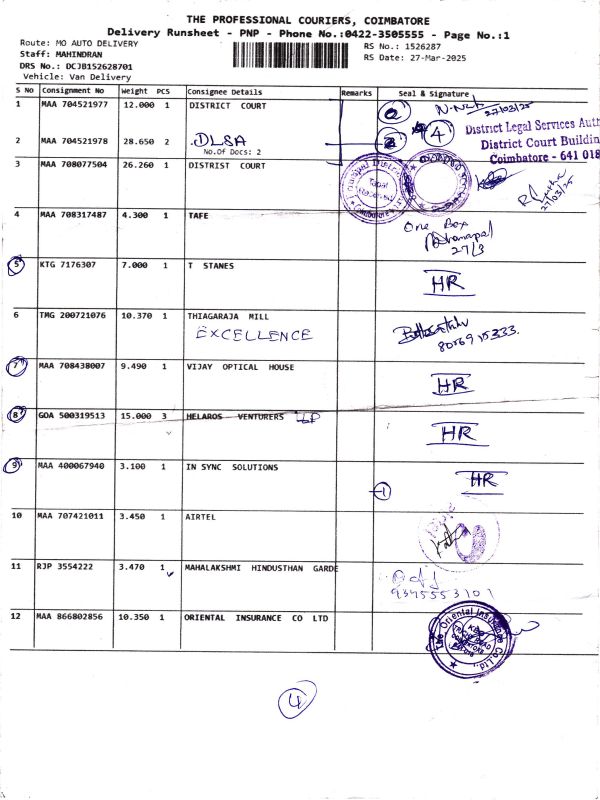 THE PROFESSIONAL COURIERS, COIMBATORE
Delivery Runsheet - PNP - Phone No.:0422-3505555 - Page No.:1
Route: MO AUTO DELIVERY
RS No.: 1526287
Staff: MAHINDRAN
RS Date: 27-Mar-2025
DRS No.: DCJB152628701
Vehicle: Van Delivery
S No Consignment No Weight PCS Consignee Details Remarks Seal & Signature
1 MAA 704521977 12.000 1 DISTRICT COURT 2 27/03/25
2 MAA 704521978 28.650 2 DLSA 2 4
No.Of Docs: 2
District Legal Services Auth
District Court Buildin
Coimbatore - 641 018
3 MAA 708077504 26.260 1 DISTRIST COURT
27/03/25
4 MAA 708317487 4.300 1 TAFE One Box
27/3
5 KTG 7176307 7.000 1 T STANES HR
6 TMG 200721076 10.370 1 THIAGARAJA MILL
EXCELLENCE
8056915333.
7 MAA 708438007 9.490 1 VIJAY OPTICAL HOUSE HR
8 GOA 500319513 15.000 3 HELAROS VENTURERS LLP HR
9 MAA 400067940 3.100 1 IN SYNC SOLUTIONS HR
1
10 MAA 707421011 3.450 1 AIRTEL
11 RJP 3554222 3.470 1 MAHALAKSHMI HINDUSTHAN GARDE
9345553101
12 MAA 866802856 10.350 1 ORIENTAL INSURANCE CO LTD
The Oriental Insurance Co. Ltd.
4